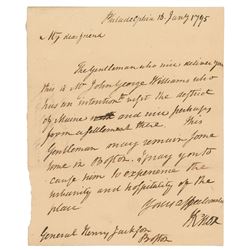 Philadelphia 13 Jany 1795
My dear friend
The Gentleman who will deliver you
this is Mr John George Williams who
has an intention visit the district
of Maine and perhaps
form a settlement there. This
Gentleman may remain some
time in Boston. I pray you to
cause him to experience the
urbanity and hospitality of the
place
Yours affectionately
HKnox
General Henry Jackson
Boston